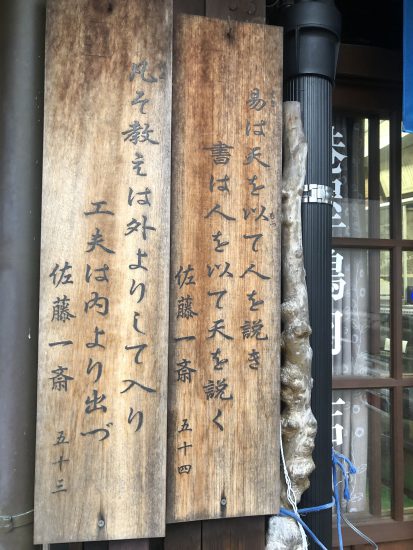 易は天を以て人を説き
書は人を以て天を説く
佐藤一斎 五十四
凡そ教えは外よりして入り
工夫は内より出づ
佐藤一斎 五十三